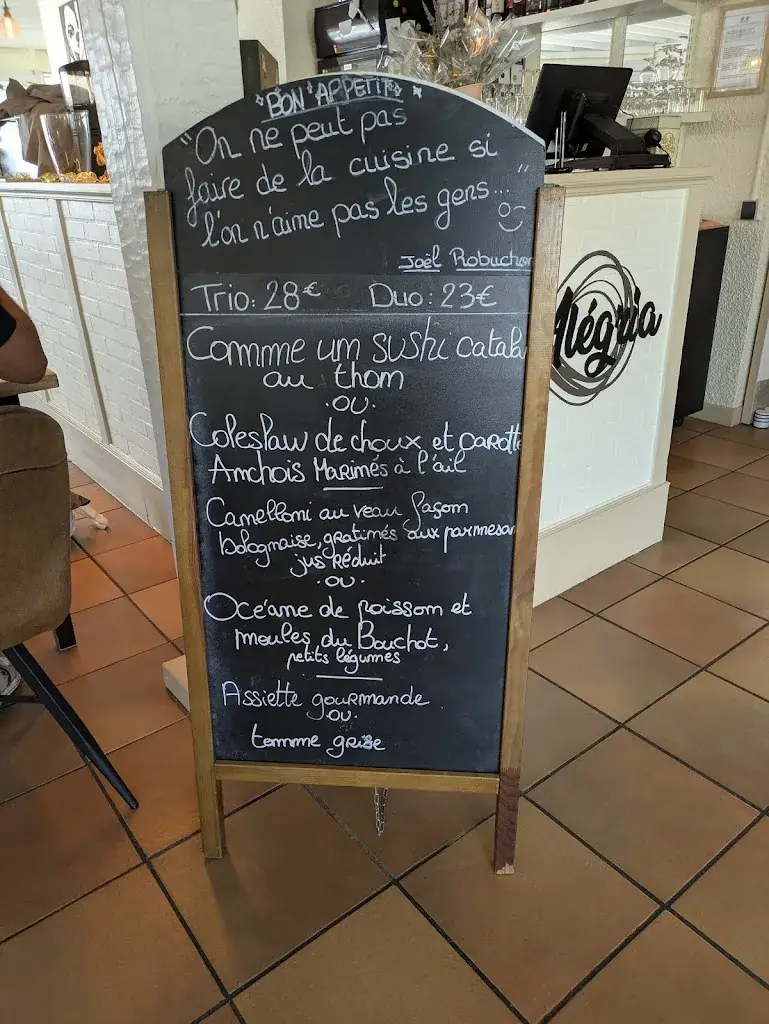 BON APPETIT
"On ne peut pas
faire de la cuisine si
l'on n'aime pas les gens..."
Joël Robuchon
Trio: 28€ Duo: 23€
Comme un sushi catala
au thon
.OU.
Coleslaw de choux et carotte
Anchois Marinés à l'ail
Cannelloni au veau façon
bolognaise, gratinés aux parmesan
jus réduit
.OU.
Océane de poisson et
moules du Bouchot,
petits légumes
Assiette gourmande
.OU.
tomme grise
Alégria